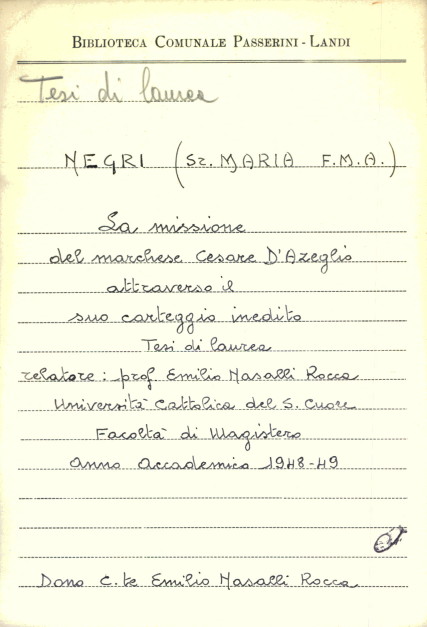 Biblioteca Comunale Passerini - Landi
Tesi di laurea
NEGRI (Sr. MARIA F.M.A.)
La missione
del marchese Cesare D'Azeglio
attraverso il
suo carteggio inedito
Tesi di laurea
relatore: prof. Emilio Nasalli Rocca
Università Cattolica del S. Cuore
Facoltà di Magistero
Anno Accademico 1948-49
Dono C.te Emilio Nasalli Rocca